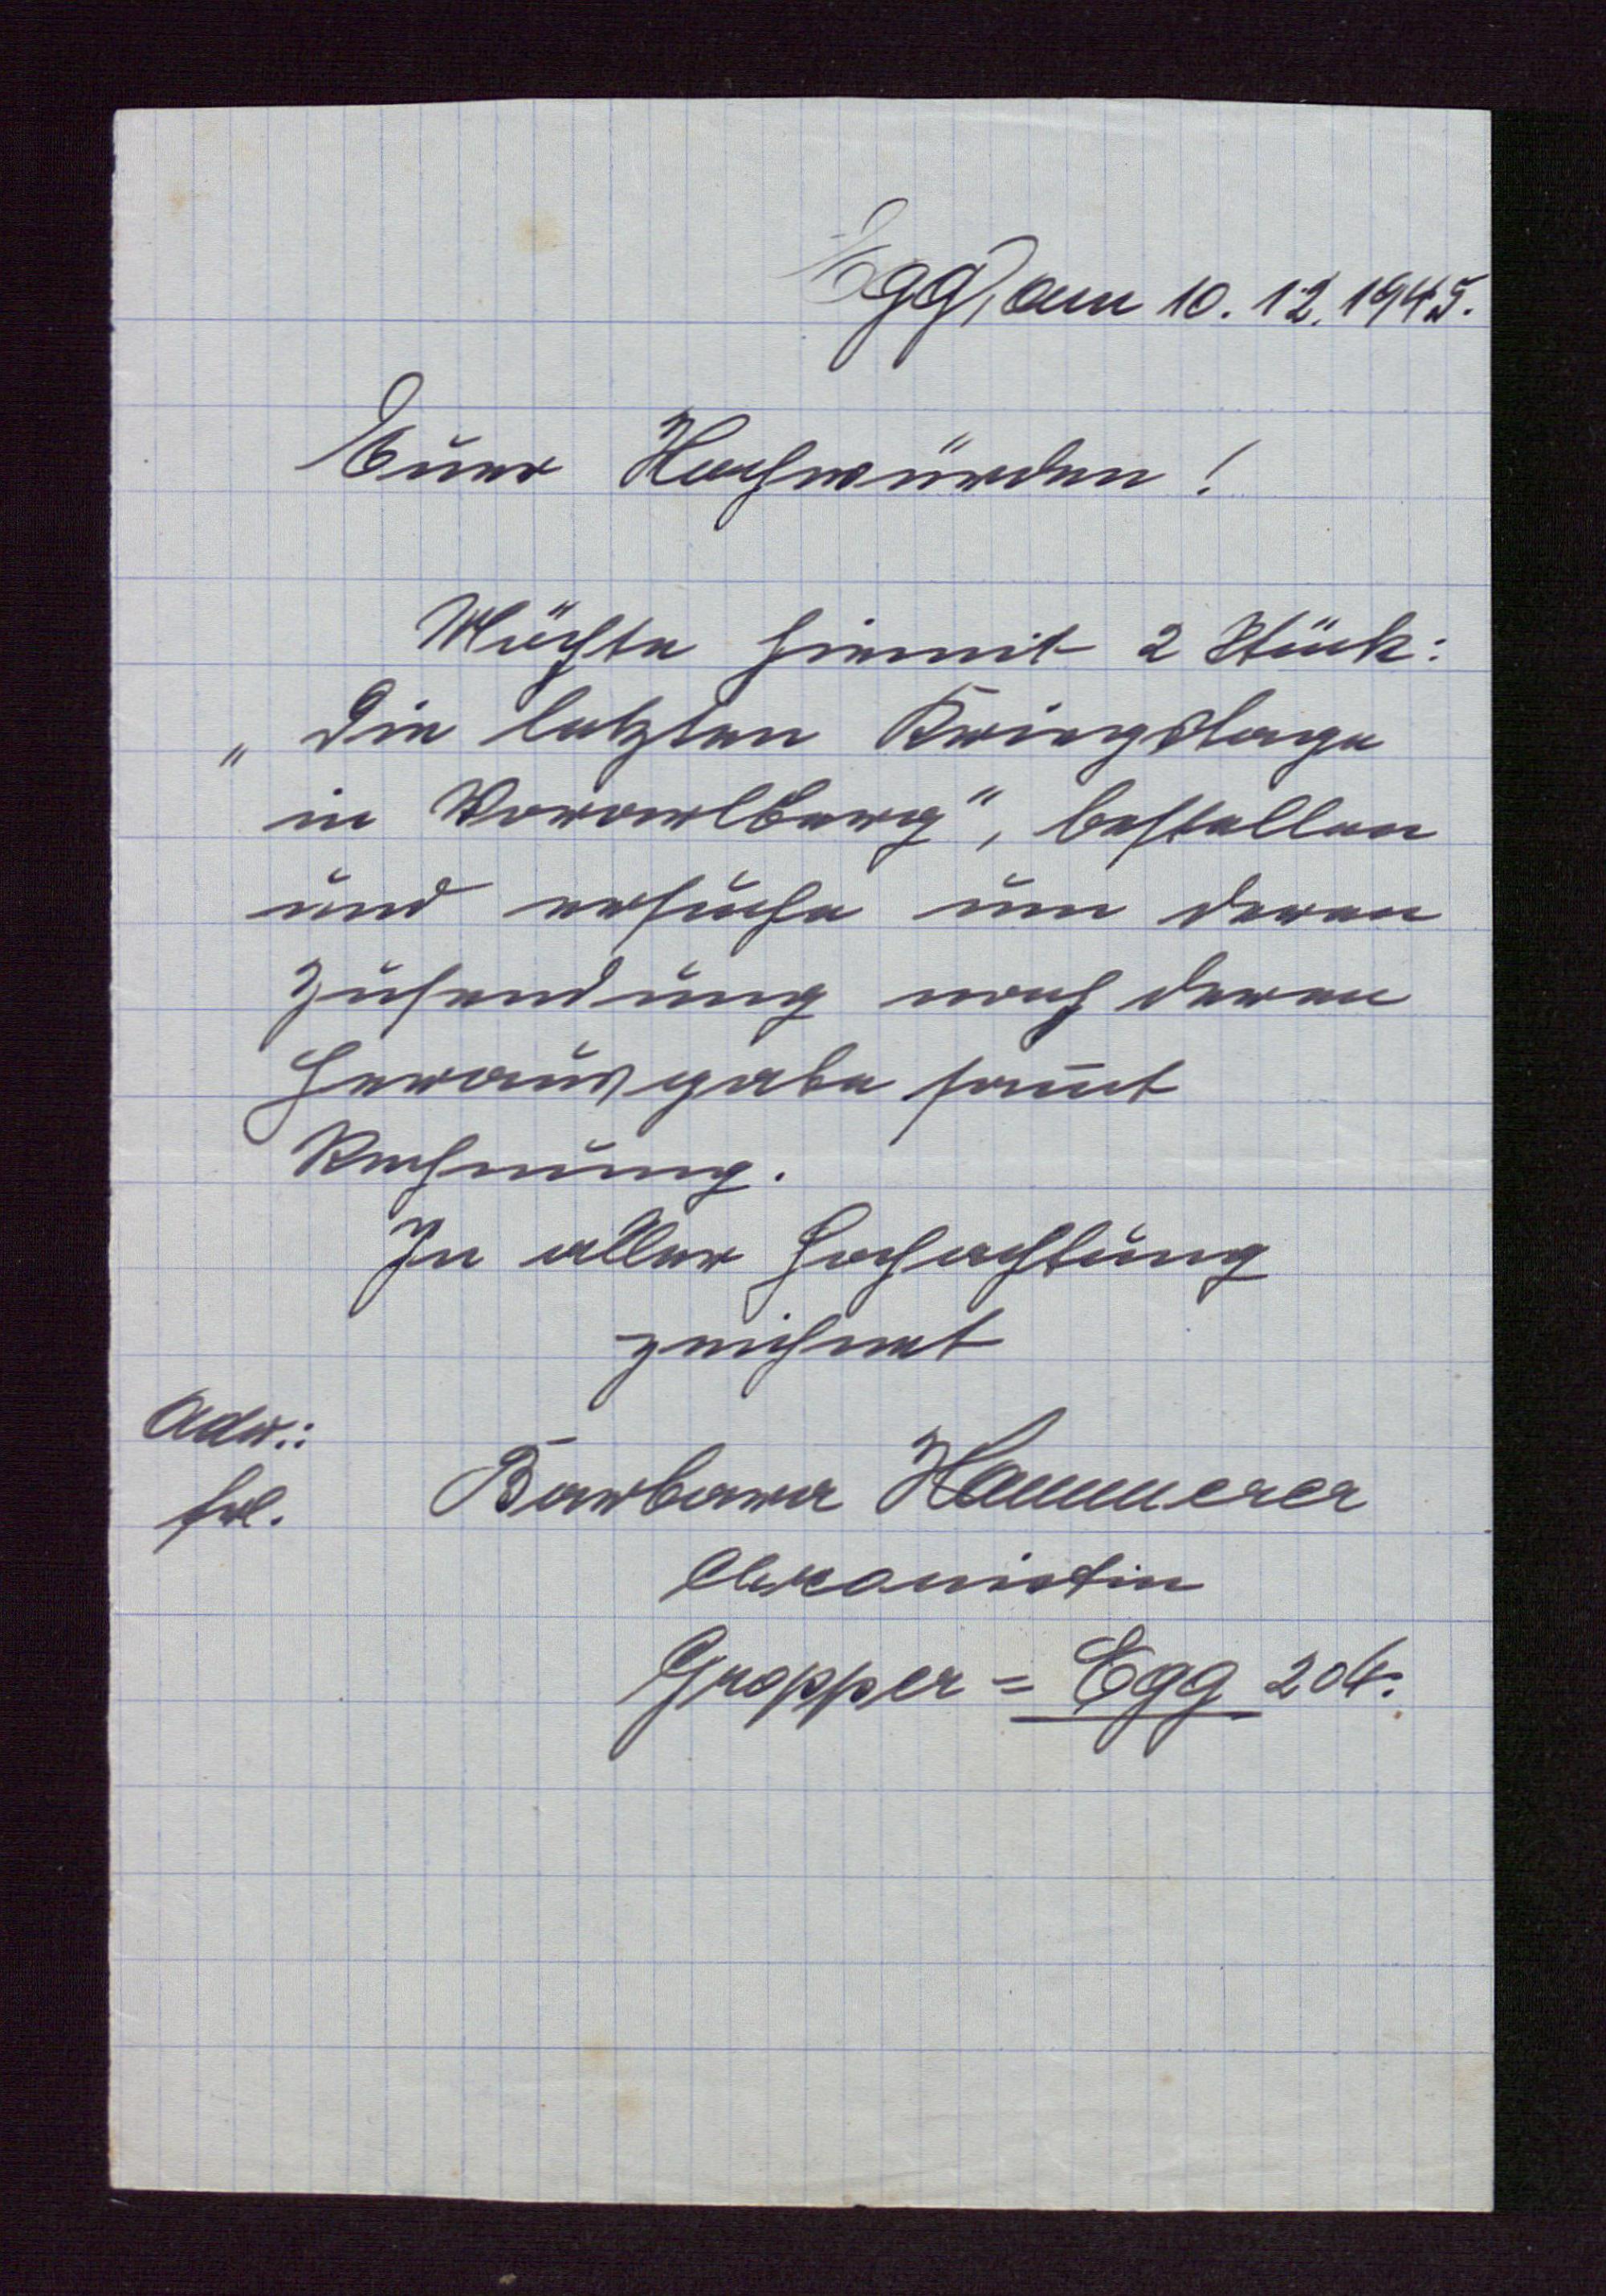 Egg, am 10.12.1945.
Euer Hochwürden!
Möchte hiemit 2 Stück:
„Die letzten Kriegstage
in Vorarlberg“, bestellen
und ersuche um deren
Zusendung nach deren
Herausgabe samt
Rechnung.
In aller Hochachtung
zeichnet
Adr.:
Frl. Barbara Hammerer
Mesnerin
Gropper = Egg 204.